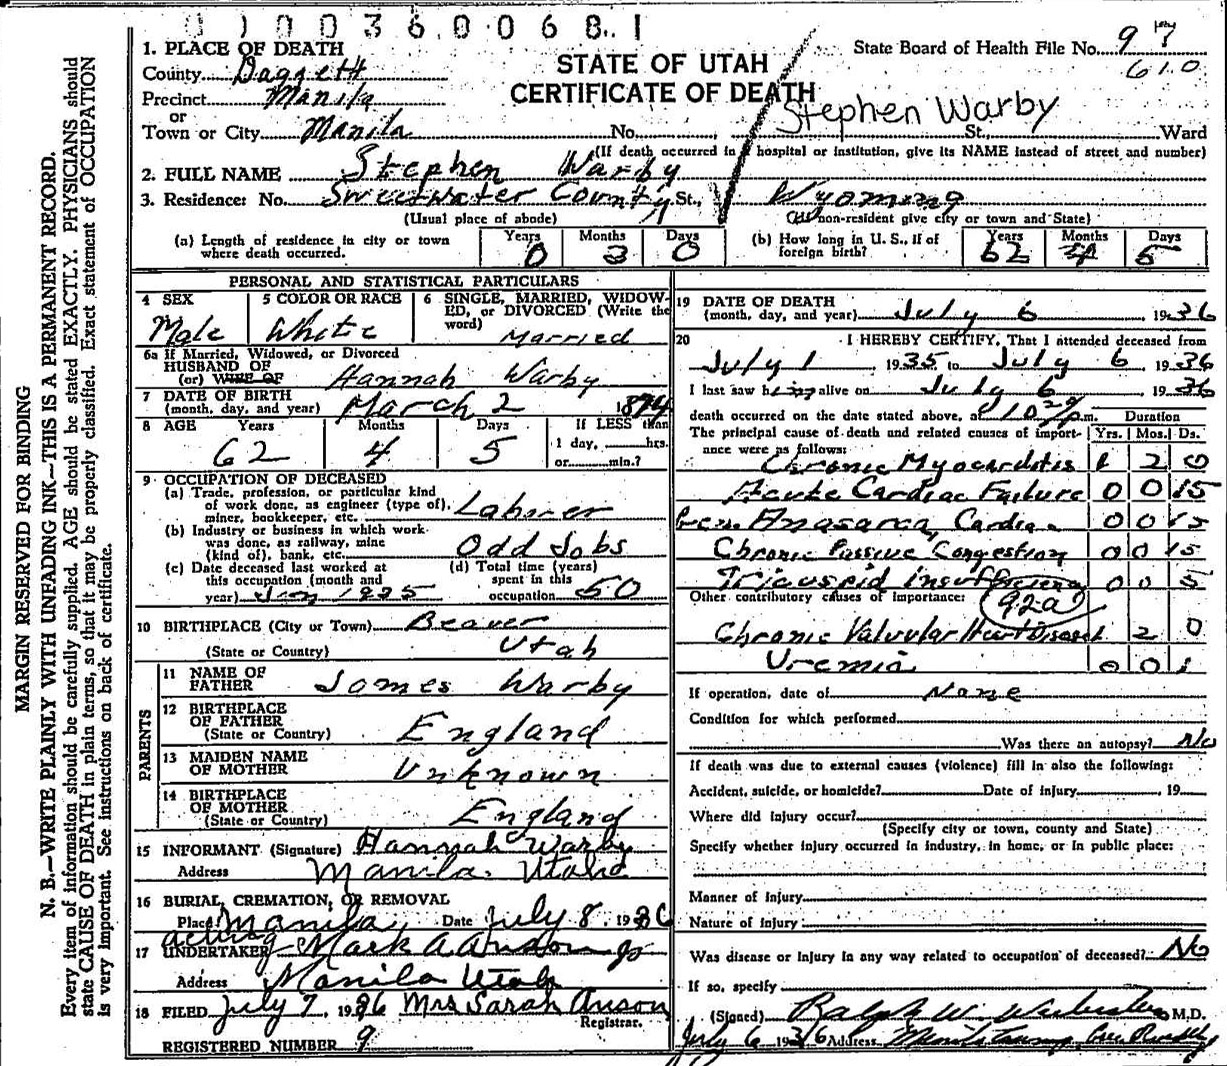 0 1 0 0 3 6 0 0 6 8 1
MARGIN RESERVED FOR BINDING
N. B.—WRITE PLAINLY WITH UNFADING INK—THIS IS A PERMANENT RECORD.
Every item of information should be carefully supplied. AGE should be stated EXACTLY. PHYSICIANS should
state CAUSE OF DEATH in plain terms, so that it may be properly classified. Exact statement of OCCUPATION
is very important. See instructions on back of certificate.
STATE OF UTAH
CERTIFICATE OF DEATH
State Board of Health File No. 97
610
Stephen Warby
1. PLACE OF DEATH
County Daggett
Precinct Manila
or
Town or City Manila No. St., Ward
(If death occurred in a hospital or institution, give its NAME instead of street and number)
2. FULL NAME Stephen Warby
3. Residence: No. Sweetwater County St., Wyoming
(Usual place of abode) (If non-resident give city or town and State)
(a) Length of residence in city or town where death occurred. Years 0 Months 3 Days 0
(b) How long in U. S., if of foreign birth? Years 62 Months 4 Days 5
PERSONAL AND STATISTICAL PARTICULARS
4 SEX Male
5 COLOR OR RACE White
6 SINGLE, MARRIED, WIDOWED, or DIVORCED (Write the word) Married
6a If Married, Widowed, or Divorced
HUSBAND OF
(or) WIFE OF Hannah Warby
7 DATE OF BIRTH
(month, day, and year) March 2 1874
8 AGE Years 62 Months 4 Days 5 If LESS than 1 day, hrs. or min.?
9 OCCUPATION OF DECEASED
(a) Trade, profession, or particular kind of work done, as engineer (type of), miner, bookkeeper, etc. Laborer
(b) Industry or business in which work was done, as railway, mine (kind of), bank, etc. Odd Jobs
(c) Date deceased last worked at this occupation (month and year) 1935
(d) Total time (years) spent in this occupation 50
10 BIRTHPLACE (City or Town) Beaver
(State or Country) Utah
PARENTS
11 NAME OF FATHER James Warby
12 BIRTHPLACE OF FATHER
(State or Country) England
13 MAIDEN NAME OF MOTHER Unknown
14 BIRTHPLACE OF MOTHER
(State or Country) England
15 INFORMANT (Signature) Hannah Warby
Address Manila. Utah
16 BURIAL, CREMATION, OR REMOVAL
Place Manila Date July 8. 1936
acting
17 UNDERTAKER Mark A Anson Jr
Address Manila Utah
18 FILED July 7, 1936 Mrs Sarah Anson
Registrar.
REGISTERED NUMBER 9
19 DATE OF DEATH
(month, day, and year) July 6, 1936
20 I HEREBY CERTIFY, That I attended deceased from
July 1 1935 to July 6 1936
I last saw him alive on July 6 1936
death occurred on the date stated above, at 10 p.m. Duration
The principal cause of death and related causes of importance were as follows: Yrs. Mos. Ds.
Chronic Myocarditis 1 2 0
Acute Cardiac Failure 0 0 15
Gen. Anasarca, Cardiac 0 0 15
Chronic Passive Congestion 0 0 15
Tricuspid insufficiency 0 0 5
Other contributory causes of importance: 92a
Chronic Valvular Heart Disease 1 2 0
Uremia 0 0 1
If operation, date of None
Condition for which performed
Was there an autopsy? No
If death was due to external causes (violence) fill in also the following:
Accident, suicide, or homicide? Date of injury , 19
Where did injury occur?
(Specify city or town, county and State)
Specify whether injury occurred in industry, in home, or in public place:
Manner of injury
Nature of injury
Was disease or injury in any way related to occupation of deceased? No
If so, specify
(Signed) Ralph W. M.D.
July 6 1936 Address Manila